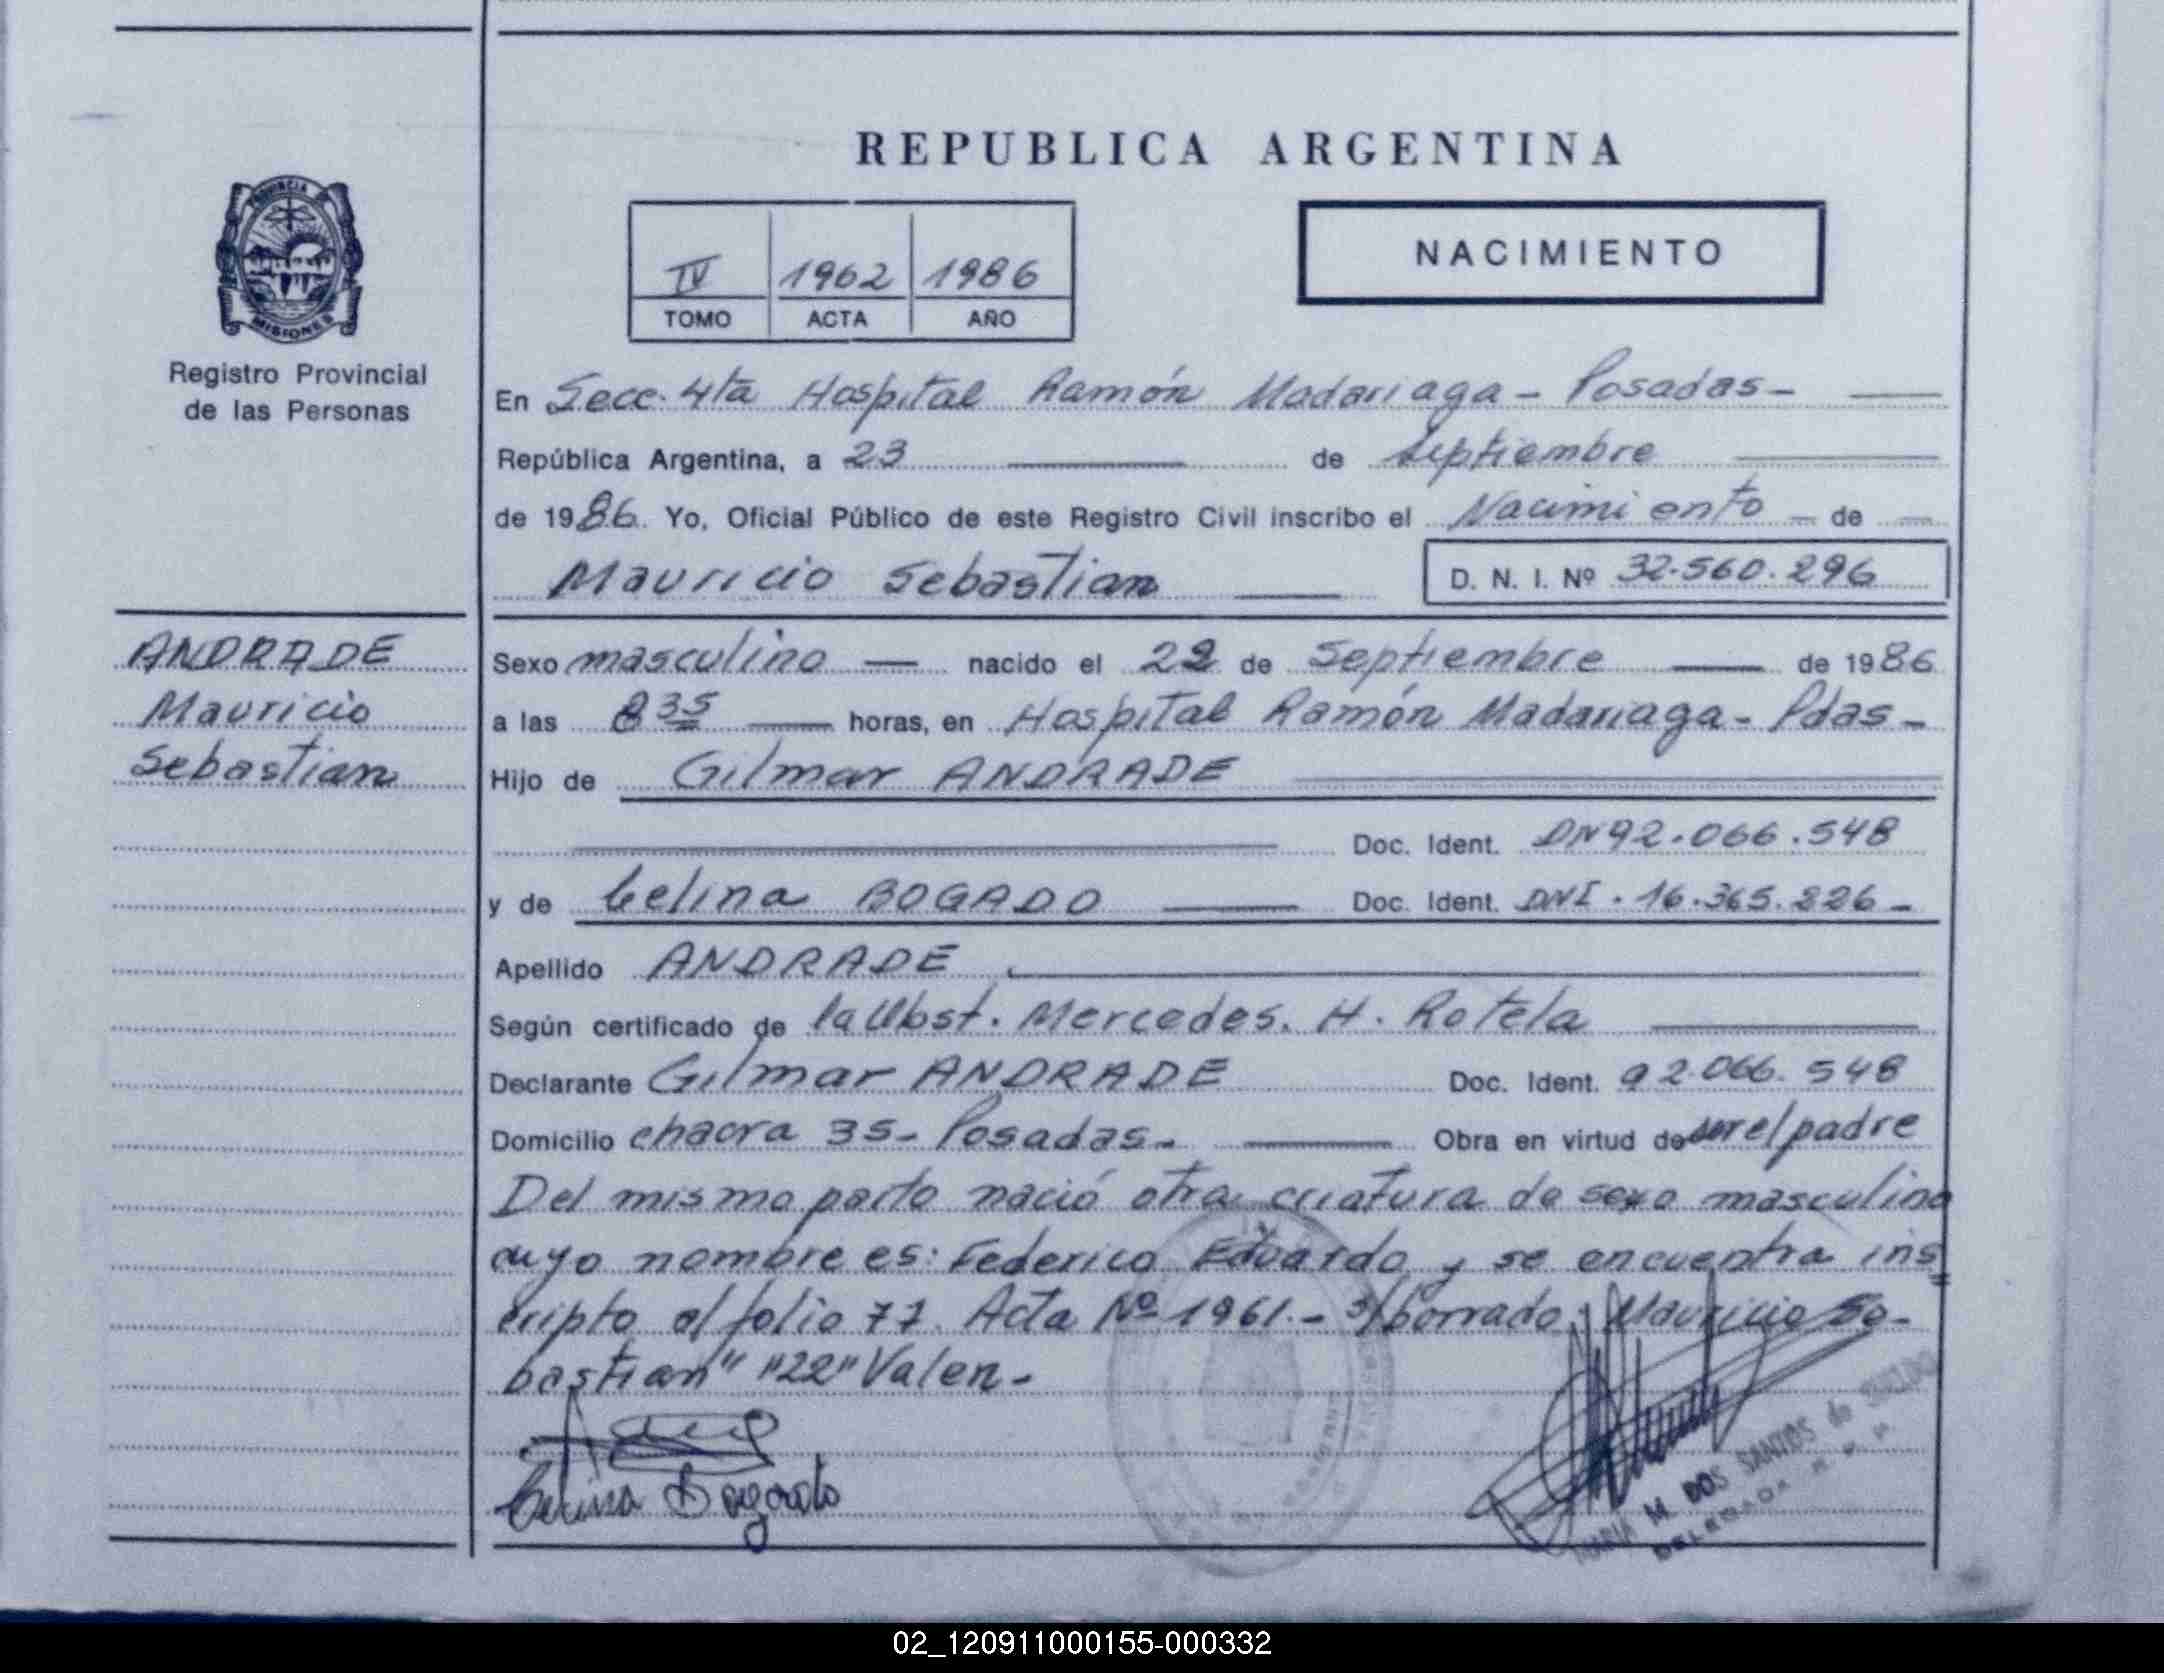 REPUBLICA ARGENTINA
PROVINCIA DE
MISIONES
Registro Provincial
de las Personas
IV 1962 1986
TOMO ACTA AÑO
NACIMIENTO
En Secc. 4ta Hospital Ramón Madariaga - Posadas -
República Argentina, a 23 de Septiembre
de 1986. Yo, Oficial Público de este Registro Civil inscribo el Nacimiento - de
Mauricio Sebastian D. N. I. Nº 32.560.296
ANDRADE
Mauricio
Sebastian
Sexo masculino nacido el 22 de Septiembre de 1986
a las 8 35 horas, en Hospital Ramón Madariaga - Pdas -
Hijo de Gilmar ANDRADE
Doc. Ident. DN 92.066.548
y de Celina BOGADO Doc. Ident. DNI. 16.365.226 -
Apellido ANDRADE
Según certificado de la Obst. Mercedes. H. Rotela
Declarante Gilmar ANDRADE Doc. Ident. 92.066.548
Domicilio chacra 35 - Posadas - Obra en virtud de ser el padre
Del mismo parto nació otra criatura de sexo masculino
cuyo nombre es: Federico Eduardo y se encuentra ins
cripto al folio 77. Acta Nº 1961.- s/borrado: Mauricio Se-
bastian" "22" Valen -
Celina Bogado
MARIA M. DOS SANTOS de
DELEGADA R. P. P.
02_120911000155-000332